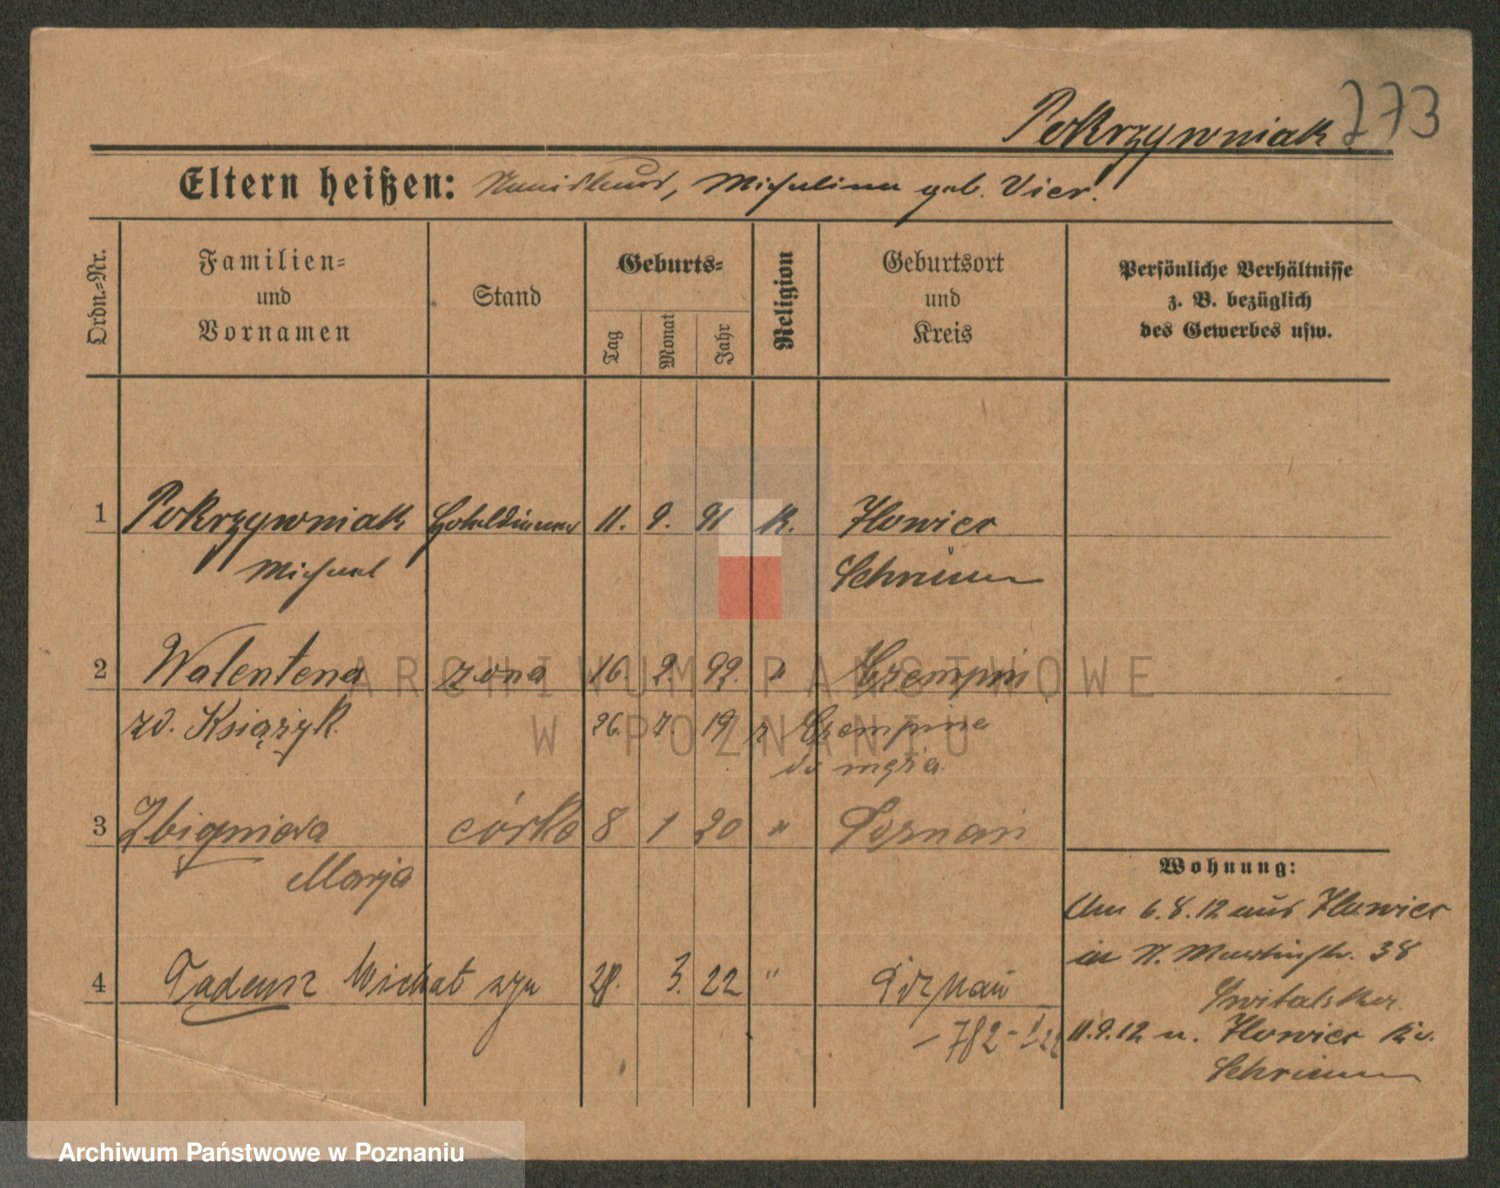 Pokrzywniak 773
Eltern heißen: Stanislaus, Michalina geb. Vier.
Ordn.-Nr.
Familien-
und
Vornamen
Stand
Geburts-
Tag
Monat
Jahr
Religion
Geburtsort
und
Kreis
Persönliche Verhältnisse
z. B. bezüglich
des Gewerbes usw.
1 Pokrzywniak Hoteldiener 11. 9. 91 k. Ilowiec
Michael Schrimm
2 Walentena żona 16. 2. 92. "
zd. Książyk. 26. 7. 19 z
do męża
3 Zbigniewa córka 8 1 20 " Poznań
Marja
4 Tadeusz Michał syn 28. 3. 22 " Poznań
Wohnung:
Am 6.8.12 aus Ilowiec
in N. Martinstr. 38
11.9.12 n. Ilowiec Kr.
Schrimm
ARCHIWUM PAŃSTWOWE
W POZNANIU
Archiwum Państwowe w Poznaniu